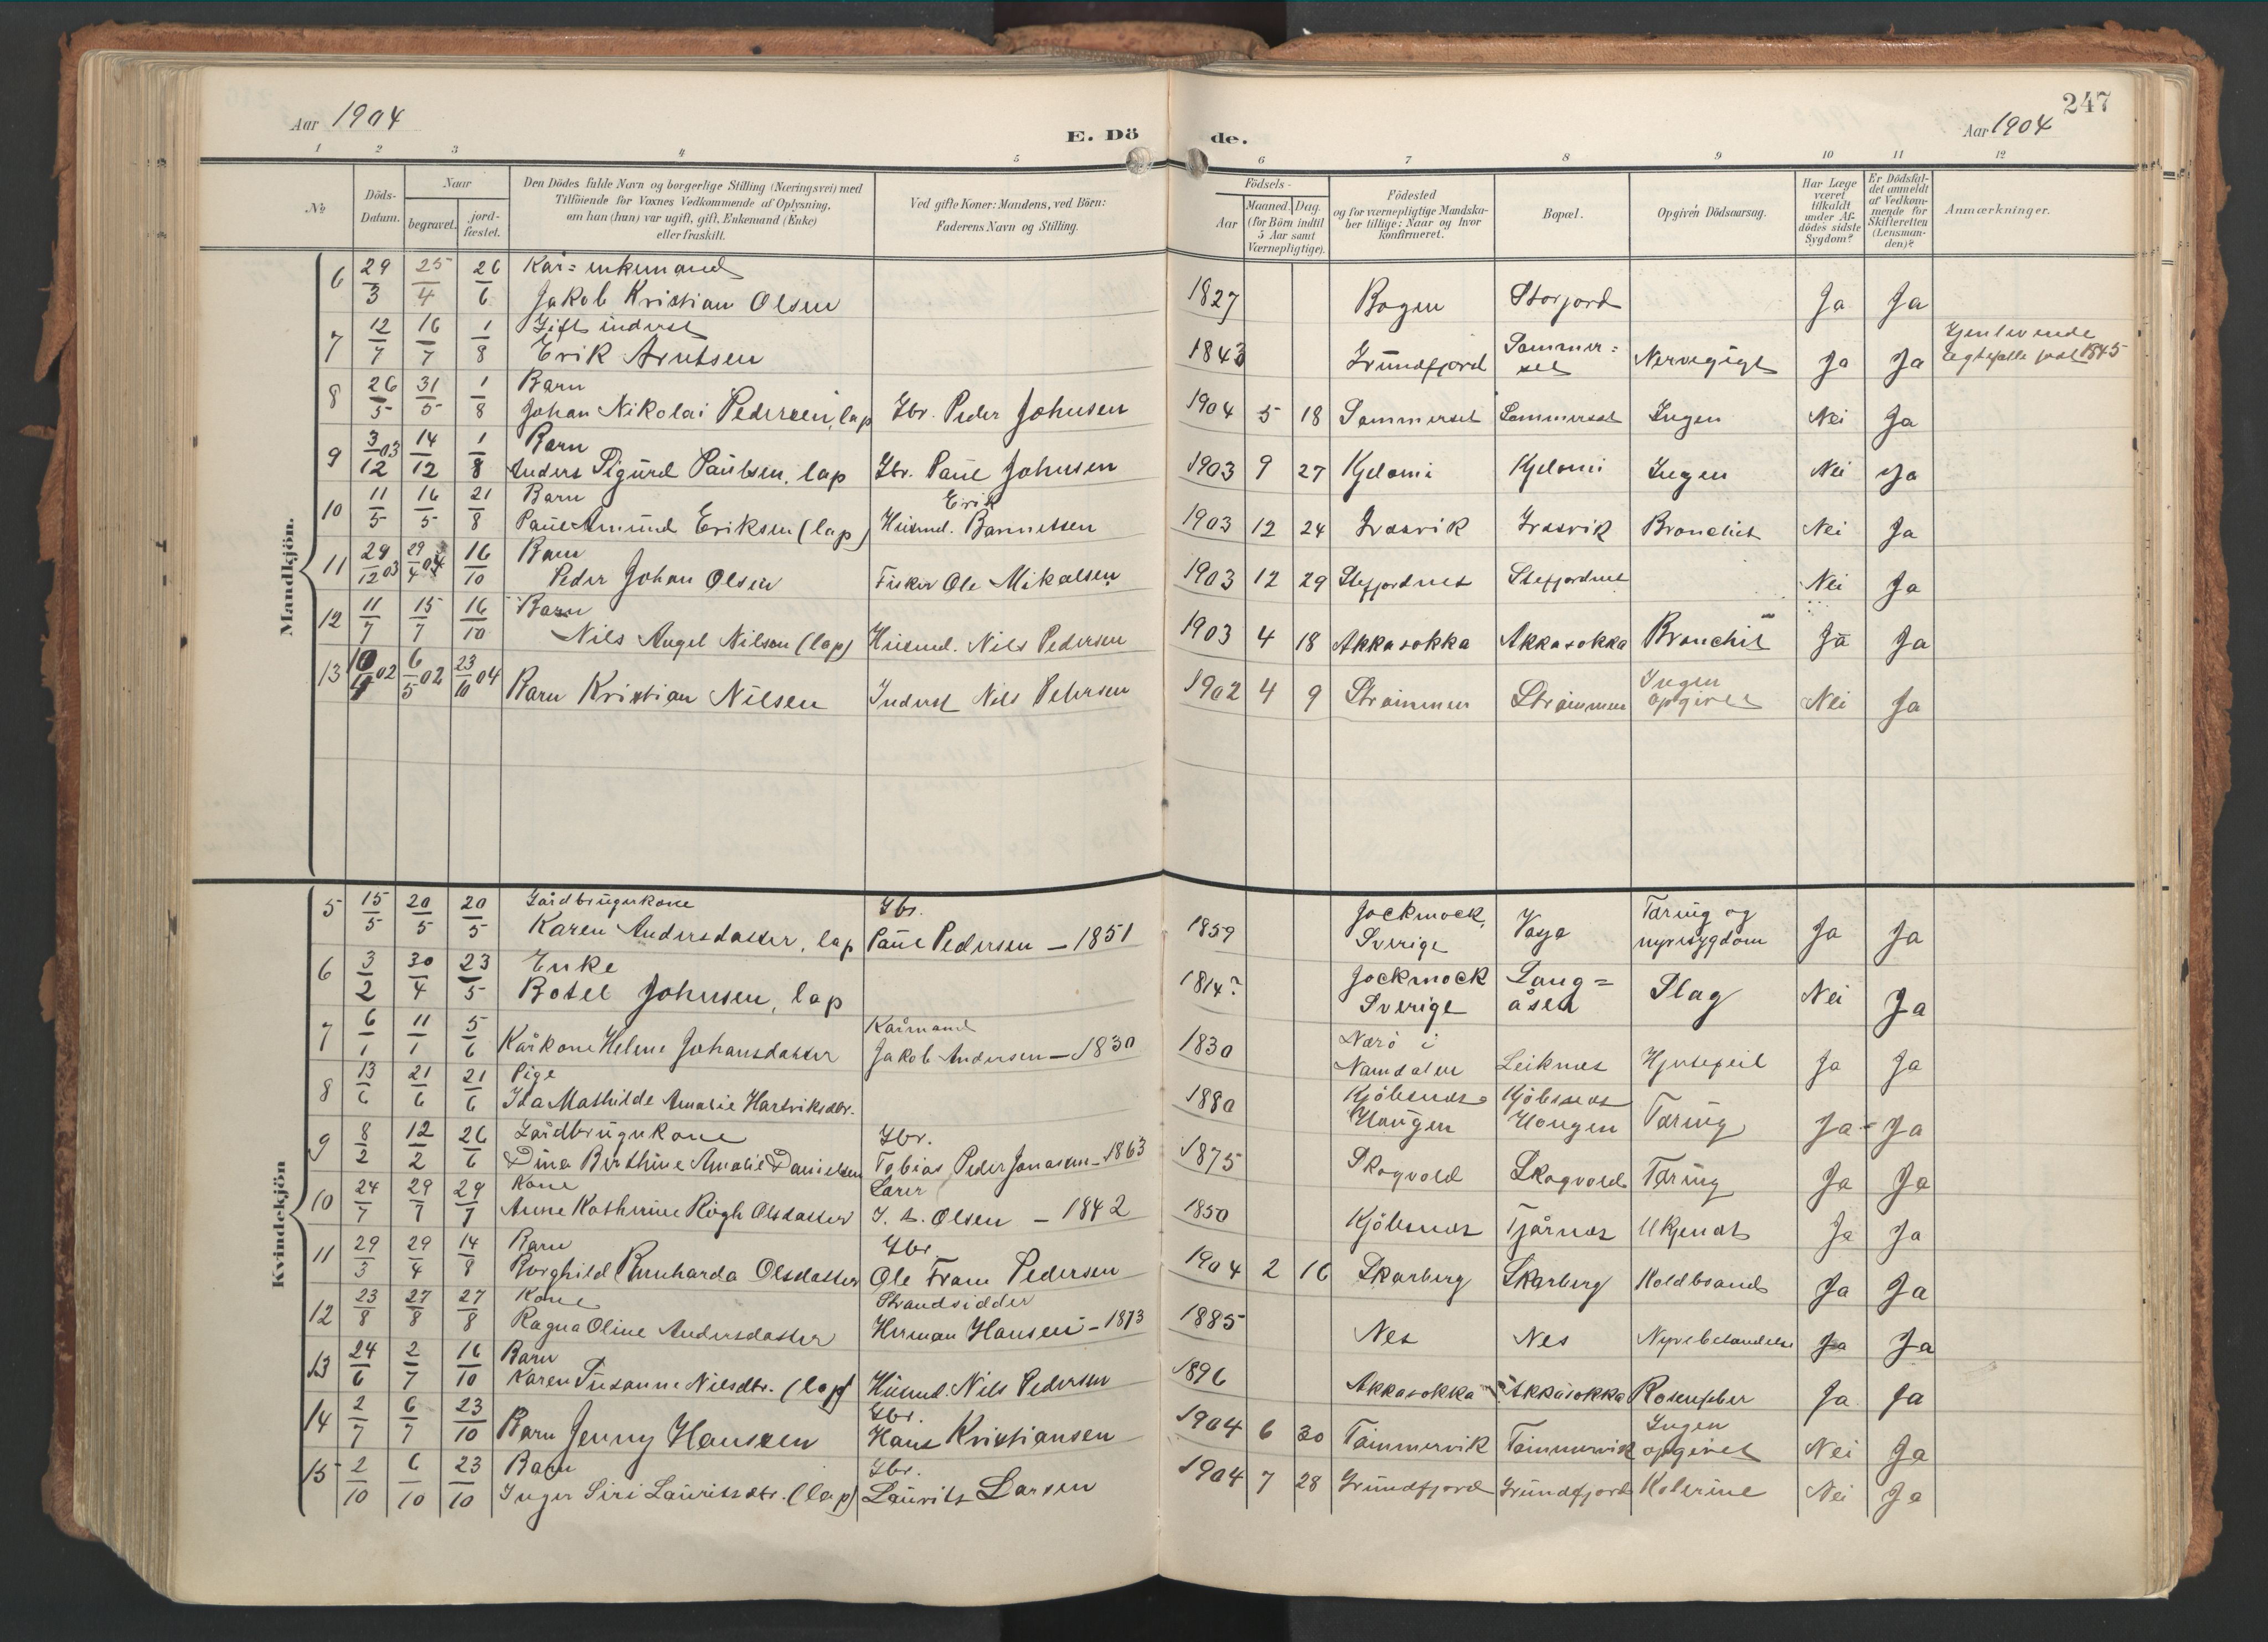 247
Aar 1904
E. Dö de.
Aar 1904
1 2 3 4 5 6 7 8 9 10 11 12
№
Döds-Datum.
Naar
begravet.
jord-fæstet.
Den Dödes fulde Navn og borgerlige Stilling (Næringsvei) med
Tilföiende for Voxnes Vedkommende af Oplysning,
om han (hun) var ugift, gift, Enkemand (Enke)
eller fraskilt.
Ved gifte Koner: Mandens, ved Börn:
Faderens Navn og Stilling.
Födsels-
Aar
Maaned. Dag.
(for Börn indtil
5 Aar samt
Værnepligtige).
Födested
og for værnepligtige Mandska-
ber tillige: Naar og hvor
konfirmeret.
Bopæl.
Opgiven Dödsaarsag.
Har Læge
været
tilkaldt
under Af-
dödes sidste
Sygdom?
Er Dödsfal-
det anmeldt
af Vedkom-
mende for
Skifteretten
(Lensman-
den)?
Anmærkninger.
Mandkjön.
6 29/3 25/4 26/6 Kår=enkemand
Jakob Kristian Olsen 1827 Bogen Storjord Ja Ja
7 12/7 16/7 1/8 Gift inderst
Erik Arntsen 1843 Grundfjord Sommer=
set Nervegigt Ja Ja Gjenlevende
Ægtefælle født 1845
8 26/5 31/5 1/8 Barn
Johan Nikolai Pedersen, lap Gbr. Peder Johnsen 1904 5 18 Sommerset Sommerset Ingen Nei Ja
9 3/12 03 14/12 1/8 Barn
Anders Sigurd Paulsen, lap Gbr. Paul Johnsen 1903 9 27 Kjelomi Kjelomi Ingen Nei Ja
10 11/5 16/5 21/8 Barn
Paul Amund Eriksen (lap) Husmd. Erik Bannetsen 1903 12 24 Grasvik Grasvik Bronchit Nei Ja
11 29/12 03 29/4 04 16/10 Barn
Peder Johan Olsen Fisker Ole Mikalsen 1903 12 29 Stefjordnes Stefjordnes Nei Ja
12 11/7 15/7 16/10 Barn
Nils Angel Nilsen (lap) Husmd. Nils Pedersen 1903 4 18 Akkasokka Akkasokka Bronchit Ja Ja
13 02 6/5 02 23/10 04 Barn Kristian Nilsen Inderst Nils Petersen 1902 4 9 Strømmen Strømmen Ingen
opgivet Nei Ja
Kvindekjön
5 15/5 20/5 20/5 Gårdbrugerkone
Karen Andersdatter, lap Gbr.
Paul Pedersen – 1851 1859 Jockmock,
Sverige Vaga Tæring og
nyresygdom Ja Ja
6 3/2 30/4 23/5 Enke
Botel Johnsen, lap 1814? Jockmock
Sverige Lang=
åsen Slag Nei Ja
7 6/1 11/1 5/6 Kårkone Helene Johansdatter Kårmand
Jakob Andersen – 1830 1830 Nærö i
Namdalen Leiknes Hjertefeil Ja Ja
8 13/6 21/6 21/6 Pige
Ida Mathilde Amalie Hartviksdtr. 1880 Kjöbsnæs
Haugen Kjöbsnæs
Haugen Tæring Ja Ja
9 8/2 12/2 26/6 Gårdbrugerkone
Dina Berthine Amalie Danielsen Gbr.
Tobias Peder Jonassen – 1863 1875 Skogvold Skogvold Tæring Ja Ja
10 24/7 29/7 29/7 Kone
Anne Katherine Rögh Olsdatter Lærer
J. S. Olsen – 1842 1850 Kjöbsnes Tjårnes Ukjendt Ja Ja
11 29/3 29/4 14/8 Barn
Borghild Bernharda Olsdatter Gbr.
Ole Fram Pedersen 1904 2 16 Skarberg Skarberg Koldbrand Ja Ja
12 23/8 27/8 27/8 Kone
Ragna Oline Andersdatter Strandsidder
Herman Hansen – 1873 1885 Nes Nes Nyrebetændelse Ja Ja
13 24/6 2/7 16/10 Barn
Karen Susanne Nilsdtr. (lap) Husmd. Nils Pedersen 1896 Akkasokka Akkasokka Rosenfeber Ja Ja
14 2/7 6/7 23/10 Barn Jenny Hansen Gbr.
Hans Kristiansen 1904 6 30 Tømmervik Tømmervik Ingen
opgivet Nei Ja
15 2/10 6/10 23/10 Barn
Inger Siri Lauritsdtr. (lap) Gbr.
Laurits Larsen 1904 7 28 Grundfjord Grundfjord Kolerine Nei Ja